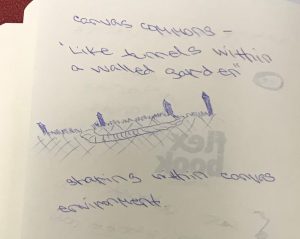 canvas commons -
"Like tunnels within
a walled garden"
flex
book
sharing within canvas
environment.